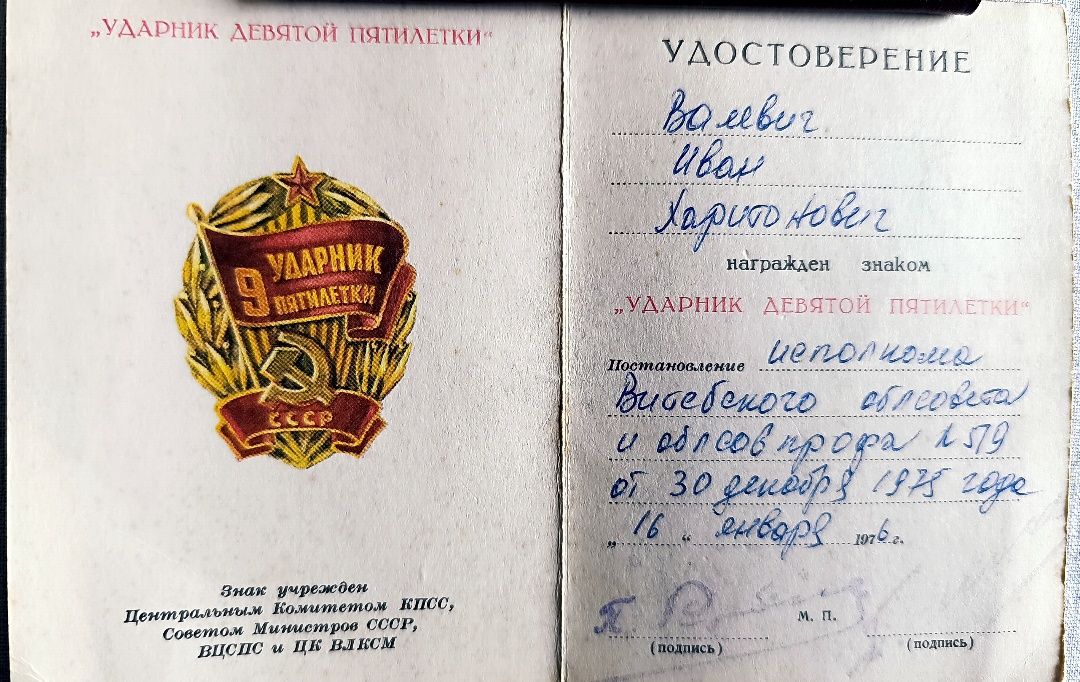 „УДАРНИК ДЕВЯТОЙ ПЯТИЛЕТКИ“
9 УДАРНИК
ПЯТИЛЕТКИ
СССР
Знак учрежден
Центральным Комитетом КПСС,
Советом Министров СССР,
ВЦСПС и ЦК ВЛКСМ
УДОСТОВЕРЕНИЕ
Валевич
Иван
Харитонович
награжден знаком
„УДАРНИК ДЕВЯТОЙ ПЯТИЛЕТКИ“
Постановление исполкома
Витебского облсовета
и облсовпрофа № 519
от 30 декабря 1975 года
„16“ января 1976 г.
М. П.
(подпись) (подпись)